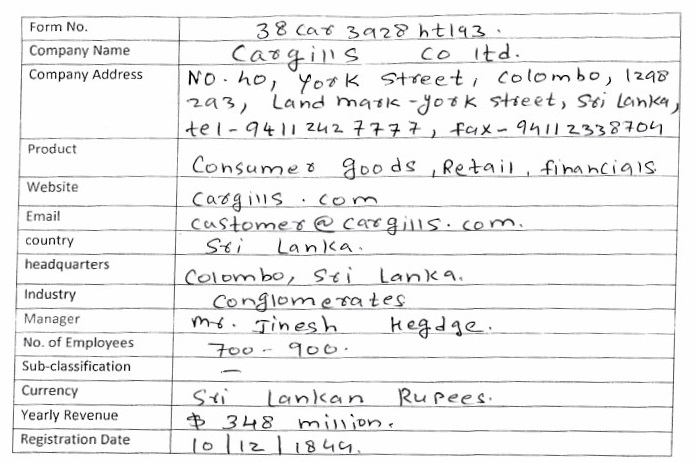 Form No. 38 car 3928 ht193.
Company Name Cargills co ltd.
Company Address NO. 40, York Street, Colombo, 1298
293, Land mark - york street, Sri Lanka,
tel - 9411 242 7777, fax - 94112338704
Product
Consumer goods, Retail, financials
Website cargills.com
Email customer@cargills.com.
country Sri Lanka.
headquarters Colombo, Sri Lanka.
Industry Conglomerates
Manager mr. Jinesh Hegdge.
No. of Employees 700 - 900.
Sub-classification —
Currency Sri Lankan Rupees.
Yearly Revenue $ 348 million.
Registration Date 10/12/1844.